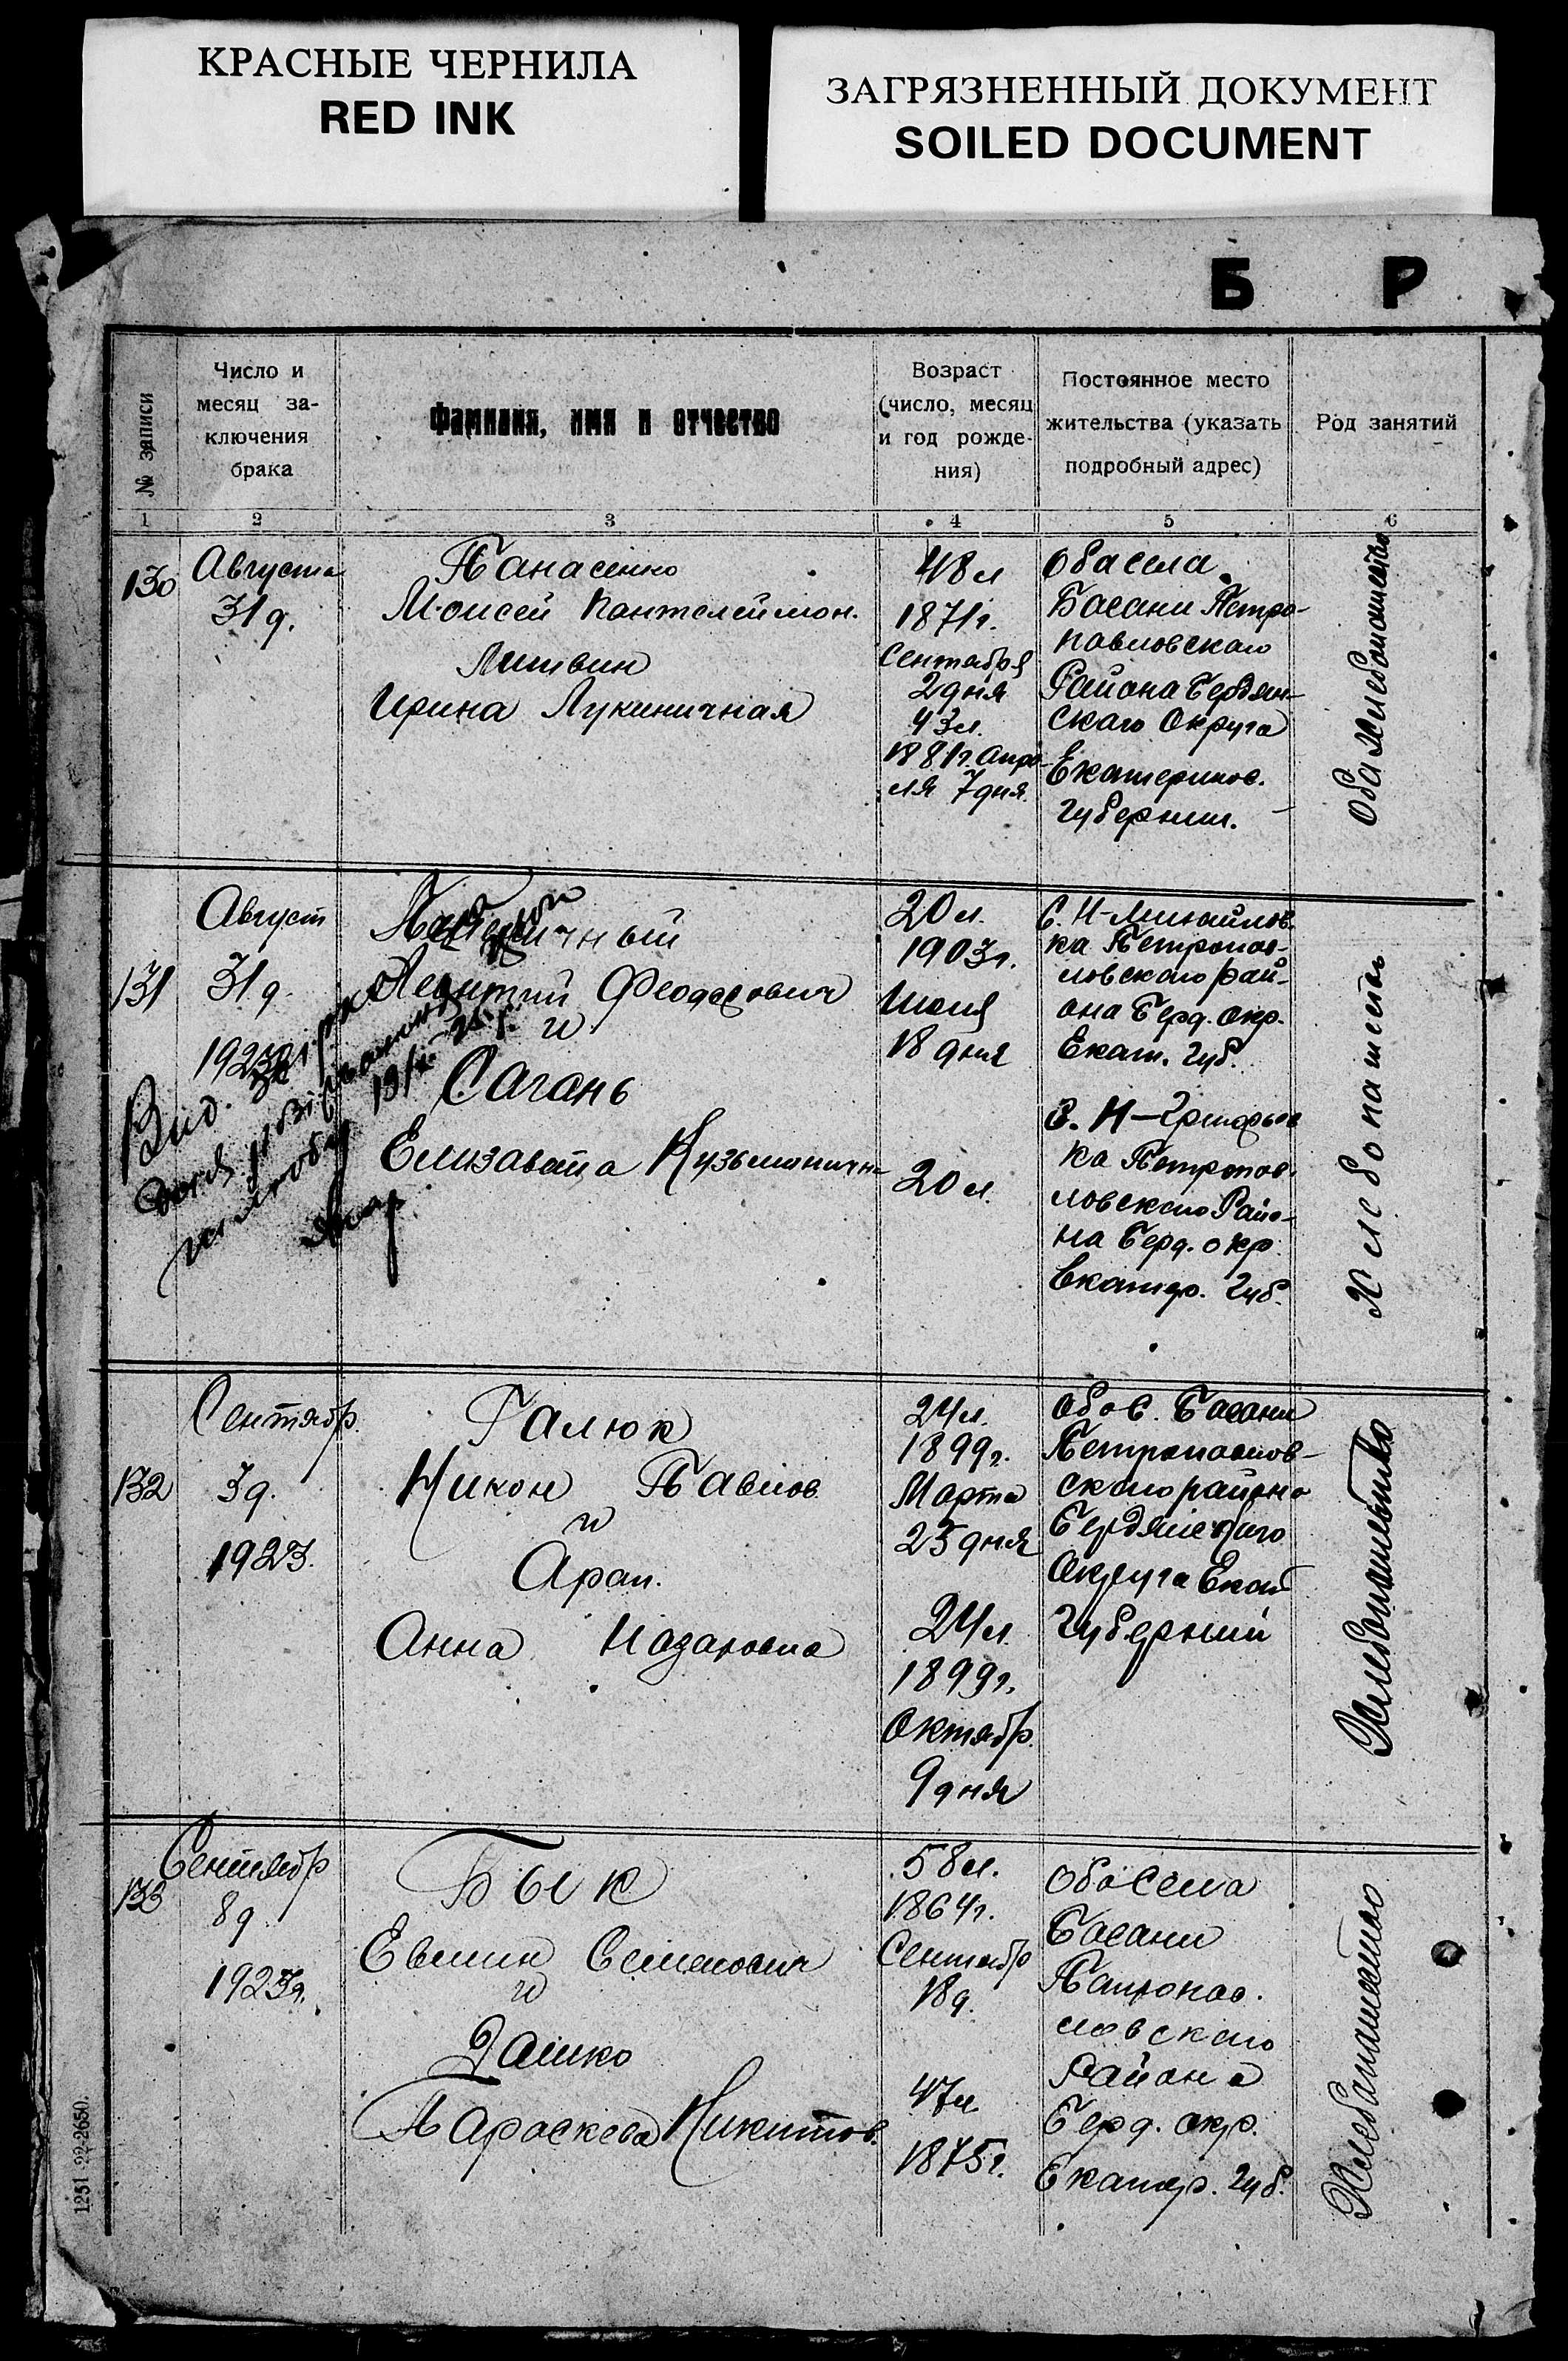 КРАСНЫЕ ЧЕРНИЛА
RED INK
ЗАГРЯЗНЕННЫЙ ДОКУМЕНТ
SOILED DOCUMENT
Б Р
№ записи
Число и
месяц за-
ключения
брака
Фамилия, имя и отчество
Возраст
(число, месяц
и год рожде-
ния)
Постоянное место
жительства (указать
подробный адрес)
Род занятий
1 2 3 4 5 6
130
Августа
31 д.
Панасенко
Моисей Пантелеймон.
Литвин
Ирина Лукинична
48 л
1871 г.
Сентября
2 дня
43 л.
1881 г. Апре-
ля 7 дня.
Оба села
Басани Петро-
павловскаго
Района Бердян-
скаго Округа
Екатеринос.
губернии.
Оба Хлебопашество
131
Август
31 д.
1923
Леонтий Феодорович
и
Сагань
Елизавета Кузьминична
20 л.
1903 г.
Июня
18 дня
20 л.
С. Н-Михайлов
ка Петропав-
ловскаго рай-
она Берд. окр.
Екат. губ.
С. Н-Григорьев
ка Петропав.
ловскаго Райо-
на Берд. окр.
Екатер. губ.
Хлебопашеств
132
Сентябр.
3 д.
1923.
Галюк
Никон Павлов
и
Арап.
Анна Назаровна
24 л.
1899 г.
Марта
25 дня
24 л.
1899 г.
Октябр.
9 дня
Оба с. Басани
Петропавлов-
скаго района
Бердянскаго
Округа Екат
Губернии
Хлебопашество
133
Сентябр
8 д
1923 г.
Бык
Евмин Семенович
и
Зашко
Параскева Никитов.
58 л.
1864 г.
Сентябр
18 д.
47 л
1875 г.
Оба села
Басани
Петропав.
ловскаго
Района
Берд. окр.
Екатер. губ.
Хлебопашество
1251 22-2650.